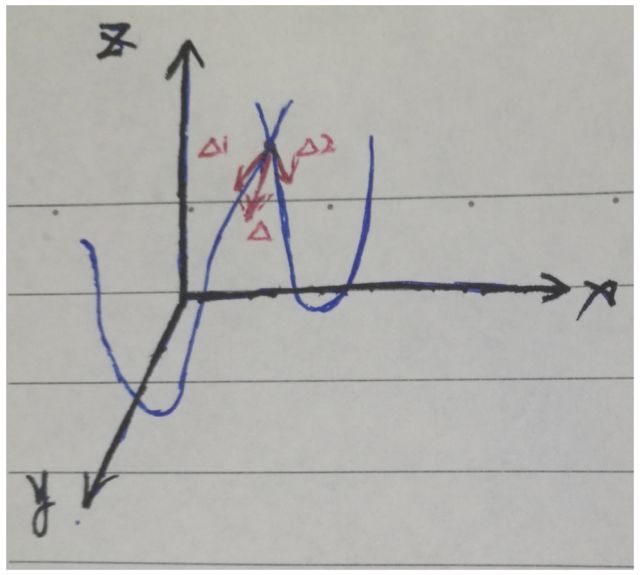 Z
Δ1 Δ2
Δ
x
y